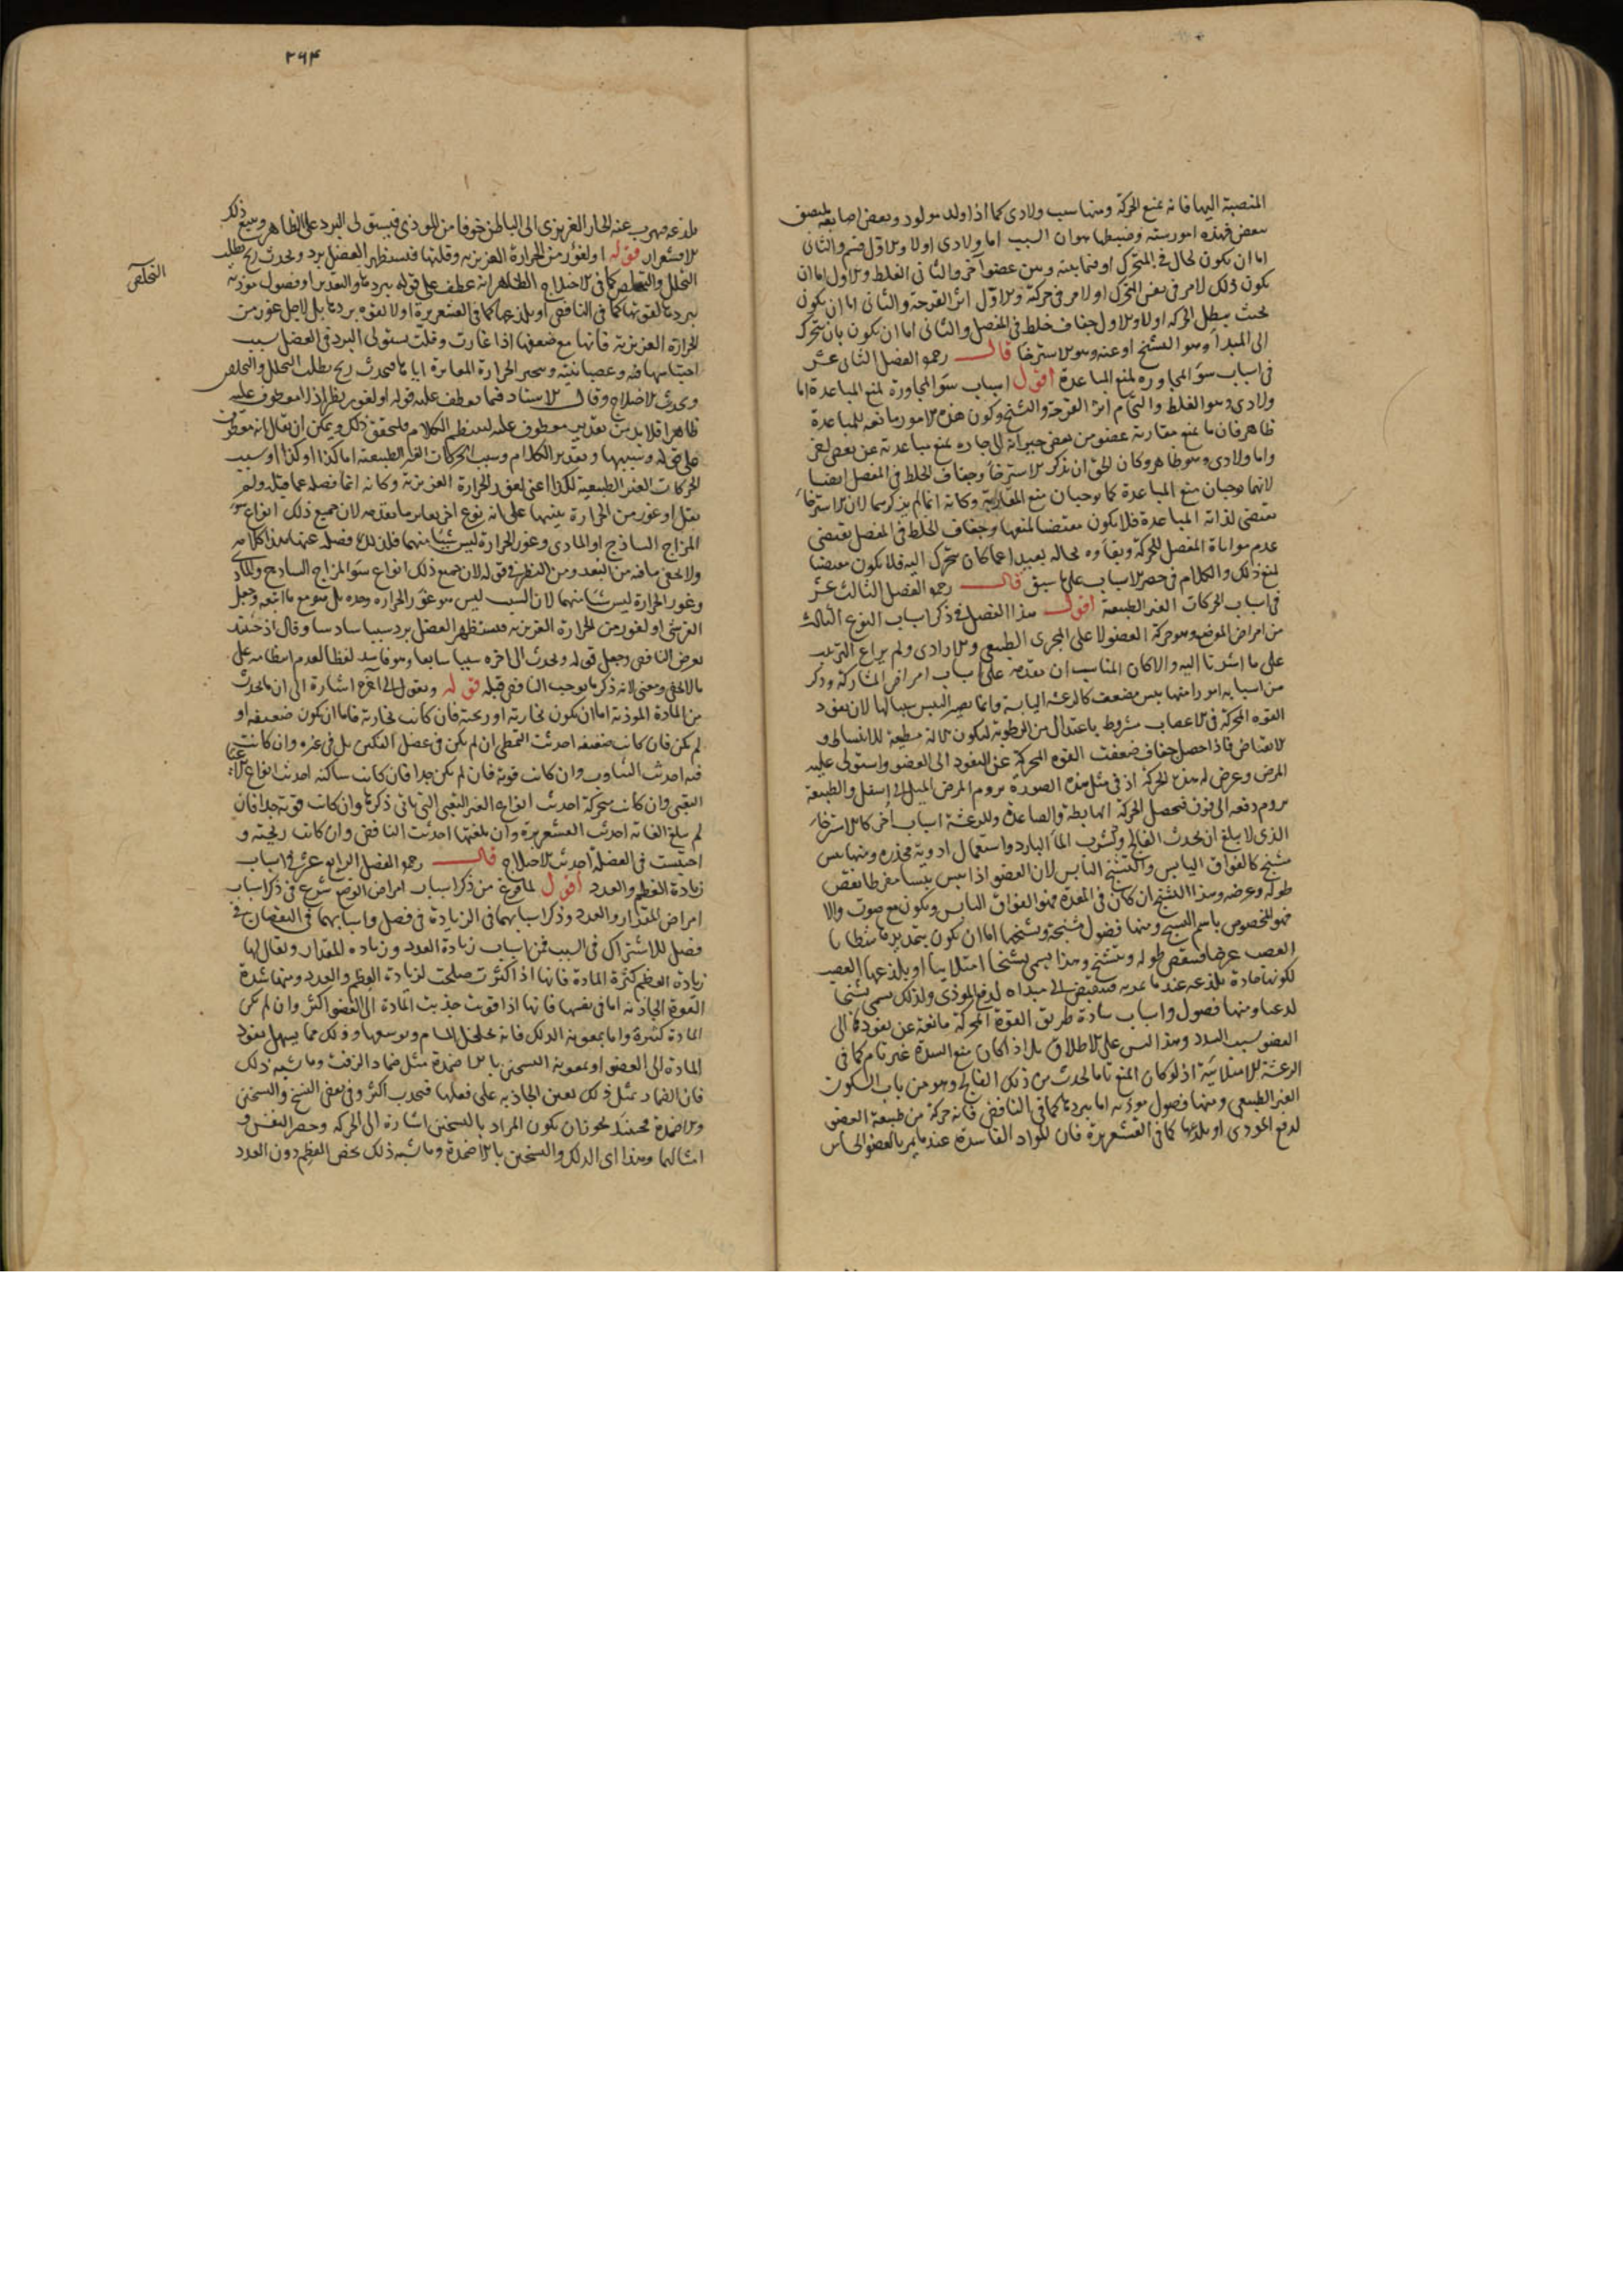 المنصبة اليها فانه يمنع الحركة ومنها سبب ولادى كما اذا ولد مولود وبعض اصابعه ملتصق
ببعض فهذه امور ستة وضبطها هو ان السبب اما ولادى اولا والاول قسم والثانى
اما ان يكون لحال فى المتحرك او فيما بينه وبين عضو آخر والثانى الغلظ والاول اما ان
يكون ذلك لامر فى نفس المتحرك او لامر فى حركته والاول اثر القرحة والثانى اما ان يكون
بحيث يبطل الحركة اولا والاول جفاف خلط فى المفصل والثانى اما ان يكون بان يتحرك
الى المبدأ وهو التشنج او عنه وهو الاسترخا قال رحمه الفصل الثانى عشر
فى اسباب سوء المجاورة لمنع المباعدة اقول اسباب سوء المجاورة لمنع المباعدة اما
ولادى وهو الغلظ والتحام اثر القرحة والتشنج وكون هذه الامور مانعة للمباعدة
ظاهر فان ما يمنع مقاربة عضو من بعض جيرانه الى جاره يمنع مباعدته عن بعض
واما ولادى وهو ظاهر وكان الحق ان يذكر الاسترخا وجفاف الخلط فى المفصل ايضا
لانهما يوجبان منع المباعدة كما يوجبان منع المقاربة وكانه انما لم يذكرهما لان الاسترخا
يقتضى لذاته المباعدة فلا يكون مقتضيا لمنعها وجفاف الخلط فى المفصل يقتضى
عدم مواتاة المفصل للحركة وبقاوه بحاله بعيدا عما كان يتحرك اليه فلا يكون مقتضيا
لمنع ذلك والكلام فى حصر الاسباب على ما سبق قال رحمه الفصل الثالث عشر
فى اسباب الحركات الغير الطبيعة اقول هذا الفصل فى ذكر اسباب النوع الثالث
من امراض الوضع وهو حركة العضو لا على المجرى الطبيعى والارادى ولم يراع الترتيب
على ما اشرنا اليه والا كان المناسب ان يقدمه على اسباب امراض المشاركة وذكر
من اسبابه امورا منها يبس مضعف كالرعشة اليابسة وانما يصير اليبس سببا لها لان نفوذ
القوة المحركة فى الاعصاب مشروط باعتدال من الرطوبة لتكون الالة مطيعة للانبساط و
الانقباض فاذا حصل جفاف ضعفت القوة المحركة عن النفوذ الى العضو واستولى عليه
المرض وعرض له هذه الحركة اذ فى مثل هذه الصورة يروم المرض الميل الى اسفل والطبيعة
يروم دفعه الى فوق فيحصل الحركة الهابطة والصاعدة وللرعشة اسباب اخر كالاسترخا
الذى لا يبلغ ان يحدث الفالج وشرب الما البارد واستعمال ادوية مخدرة ومنها يبس
مشنج كالفواق اليابس والتشنج اليابس لان العضو اذا يبس يبسا مفرطا نقص
طوله وعرضه وهذا التشنج ان كان فى المعدة فهو الفواق اليابس ويكون مع صوت والا
فهو المخصوص باسم التشنج ومنها فضول مشنجة وتشنجها اما ان يكون بتمديدها
العصب عرضا فينقص طوله ويتشنج وهذا يسمى تشنجا امتلائيا او بلذعها العصب
لكونها مادة يلذعه عندما تمر به فينقبض الى مبداه لدفع الموذى ولذلك يسمى تشنجا
لذعيا ومنها فضول واسباب سادة طريق القوة المحركة مانعة عن نفوذها الى
العضو بسبب السدد وهذا ليس على الاطلاق بل اذا كان منع السدة غير تام كما فى
الرعشة الامتلائية اذ لو كان المنع تاما لحدث من ذلك الفالج وهو من باب السكون
الغير الطبيعى ومنها فضول موذية اما ببردها كما فى النافض فانه حركة من طبيعة العضو
لدفع الموذى او بلذعها كما فى القشعريرة فان المواد الفاسدة عندما يمر بالعضو الحاس
٢٦٤
يلذعه فيهرب عنه الحار الغريزى الى الباطن خوفا من الموذى فيستولى البرد على الظاهر ويتبع ذلك
الاقشعرار قوله او لغور من الحرارة الغريزية وقلتها فتستظهر العضل ببرد ويحدث ريح يطلب
التحلل والتخلص كما فى الاختلاج الظاهر انه عطف على قوله ببردها والتقدير او فضول موذية
ببردها لقوتها كما فى النافض او بلذعها كما فى القشعريرة او لا لقوة بردها بل لاجل غور من
الحرارة الغريزية فانها مع ضعفها اذا غارت وقلت يستولى البرد فى العضل بسبب
ويحدث الاختلاج وقال الاستاد فيما يعطف عليه قوله او لغور نظر اذ لا معطوف عليه
ظاهرا فلابد من تقدير معطوف عليه لينتظم الكلام فليحقق ذلك ويمكن ان يقال انه معطوف
على قوله وسببها وتقدير الكلام وسبب الحركات الغير الطبيعة اما كذا او كذا او سبب
الحركات الغير الطبيعية لكذا اعنى لغور الحرارة الغريزية وكانه انما فصله عما قبله ولم
يقل او غور من الحرارة تنبيها على انه نوع اخر يغاير ما تقدمه لان جميع ذلك انواع سوء
المزاج الساذج او المادى وغور الحرارة ليس شيئا منهما فلذلك فصله عنها هذا كلامه
ولا يخفى ما فيه من البعد ومن النظر فى قوله لان جميع ذلك انواع سوء المزاج الساذج والمادى
وغور الحرارة ليس شيئا منهما لان السبب ليس هو غور الحرارة وحده بل هو مع ما اتبعه وجعل
القرشى او لغور من الحرارة الغريزية فيستظهر العضل ببرد سببا سادسا وقال اذ حينئذ
يعرض النافض وجعل قوله ويحدث الى اخره سببا سابعا وهو فاسد لفظا لعدم انتظامه على
ما لا يخفى ومعنى لانه ذكر ما يوجب النافض قبله قوله ونقول الى آخره اشارة الى ان ما يحدث
من المادة الموذية اما ان يكون بخارية او ريحية فان كانت بخارية فاما ان يكون ضعيفة او
لم يكن فان كانت ضعيفة احدثت التمطى ان لم يكن فى عضل الفكين بل فى غيره وان كانت
فيه احدثت التثاوب وان كانت قوية فان لم يكن جدا فان كانت ساكنة احدثت انواع الاعياء
التعبى وان كانت متحركة احدثت انواع الغير التعبى التى ياتى ذكرها وان كانت قوية جدا فان
لم يبلغ الغاية احدثت القشعريرة وان بلغتها احدثت النافض وان كانت ريحية و
احتبست فى العضلة احدثت الاختلاج قال رحمه الفصل الرابع عشر فى اسباب
زيادة العظم والعدد اقول لما فرغ من ذكر اسباب امراض الوضع شرع فى ذكر اسباب
امراض المقدار والعدد وذكر اسبابهما فى الزيادة فى فصل واسبابهما فى النقصان فى
فصل للاشتراك فى السبب فمن اسباب زيادة العدد وزيادة المقدار ويقال لها
زيادة العظم كثرة المادة فانها اذا كثرت صلحت لزيادة العظم والعدد ومنها شدة
القوة الجاذبة اما فى نفسها فانها اذا قويت جذبت المادة الى العضو اكثر وان لم تكن
المادة كثيرة واما بمعونة الدلك فانه يخلخل المسام ويوسعها وذلك مما يسهل نفوذ
المادة الى العضو او بمعونة التسخين بالاضمدة مثل ضماد الزفت وما شبه ذلك
فان الضماد بمثل ذلك يعين الجاذبة على فعلها فتجذب اكثر وفى بعض النسخ والتسخين
والاضمدة فحينئذ يجوز ان يكون المراد بالتسخين اشارة الى الحركة وحصر النفس و
امثالهما وهذا اى الدلك والتسخين بالاضمدة وما شبه ذلك يخص العظم دون العدد